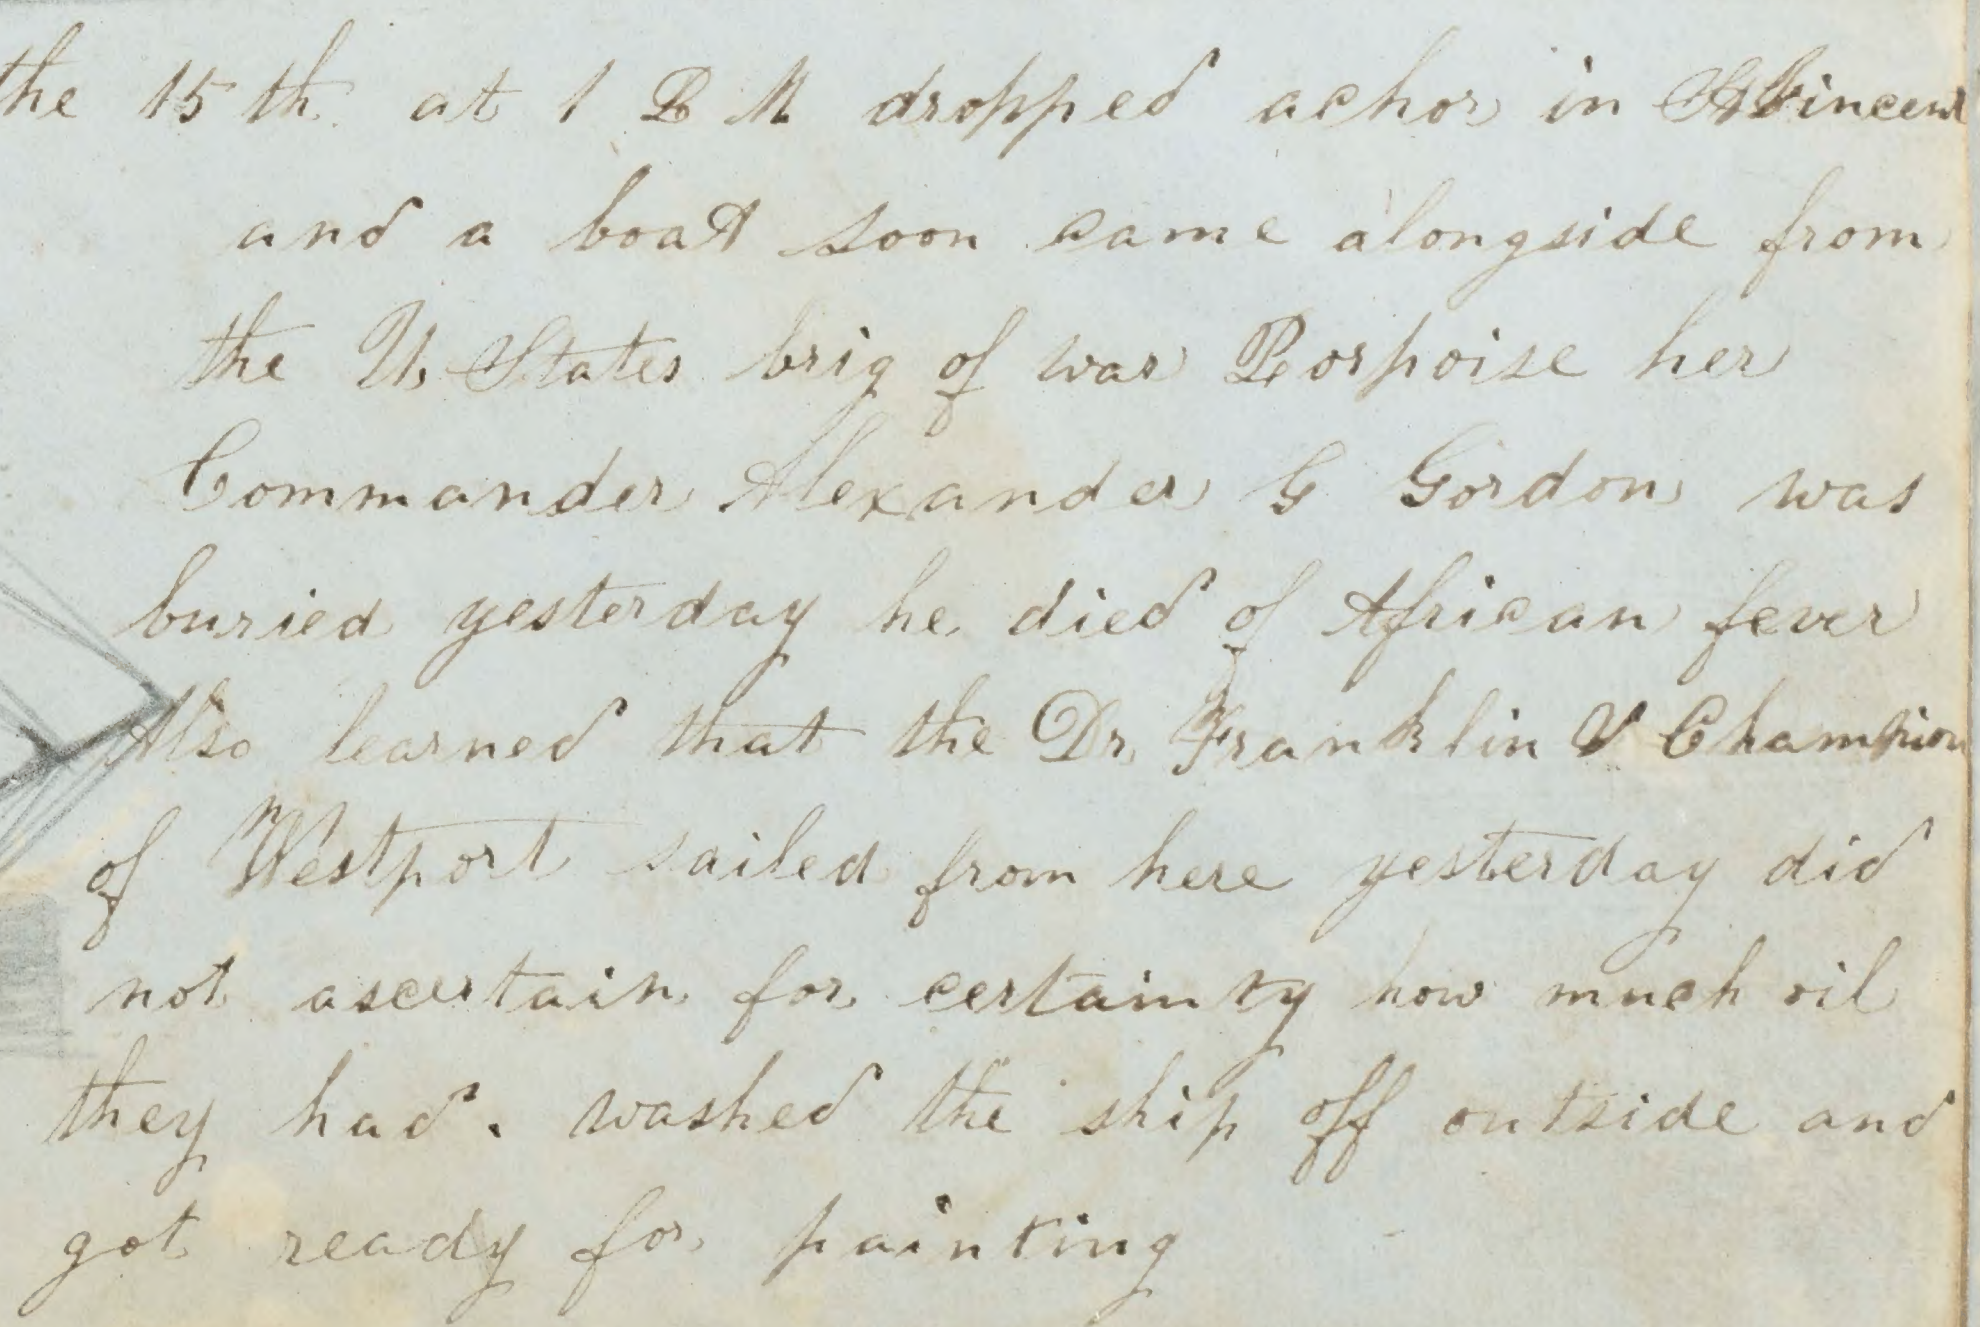 the 15th at 1 P M dropped achor in St Vincent
and a boat soon came alongside from
the U. States brig of war Porpoise her
Commander Alexander G Gordon was
buried yesterday he died of African fever
Also learned that the Dr. Franklin & Champion
of Westport sailed from here yesterday did
not ascertain for certainty how much oil
they had. washed the ship off outside and
got ready for painting